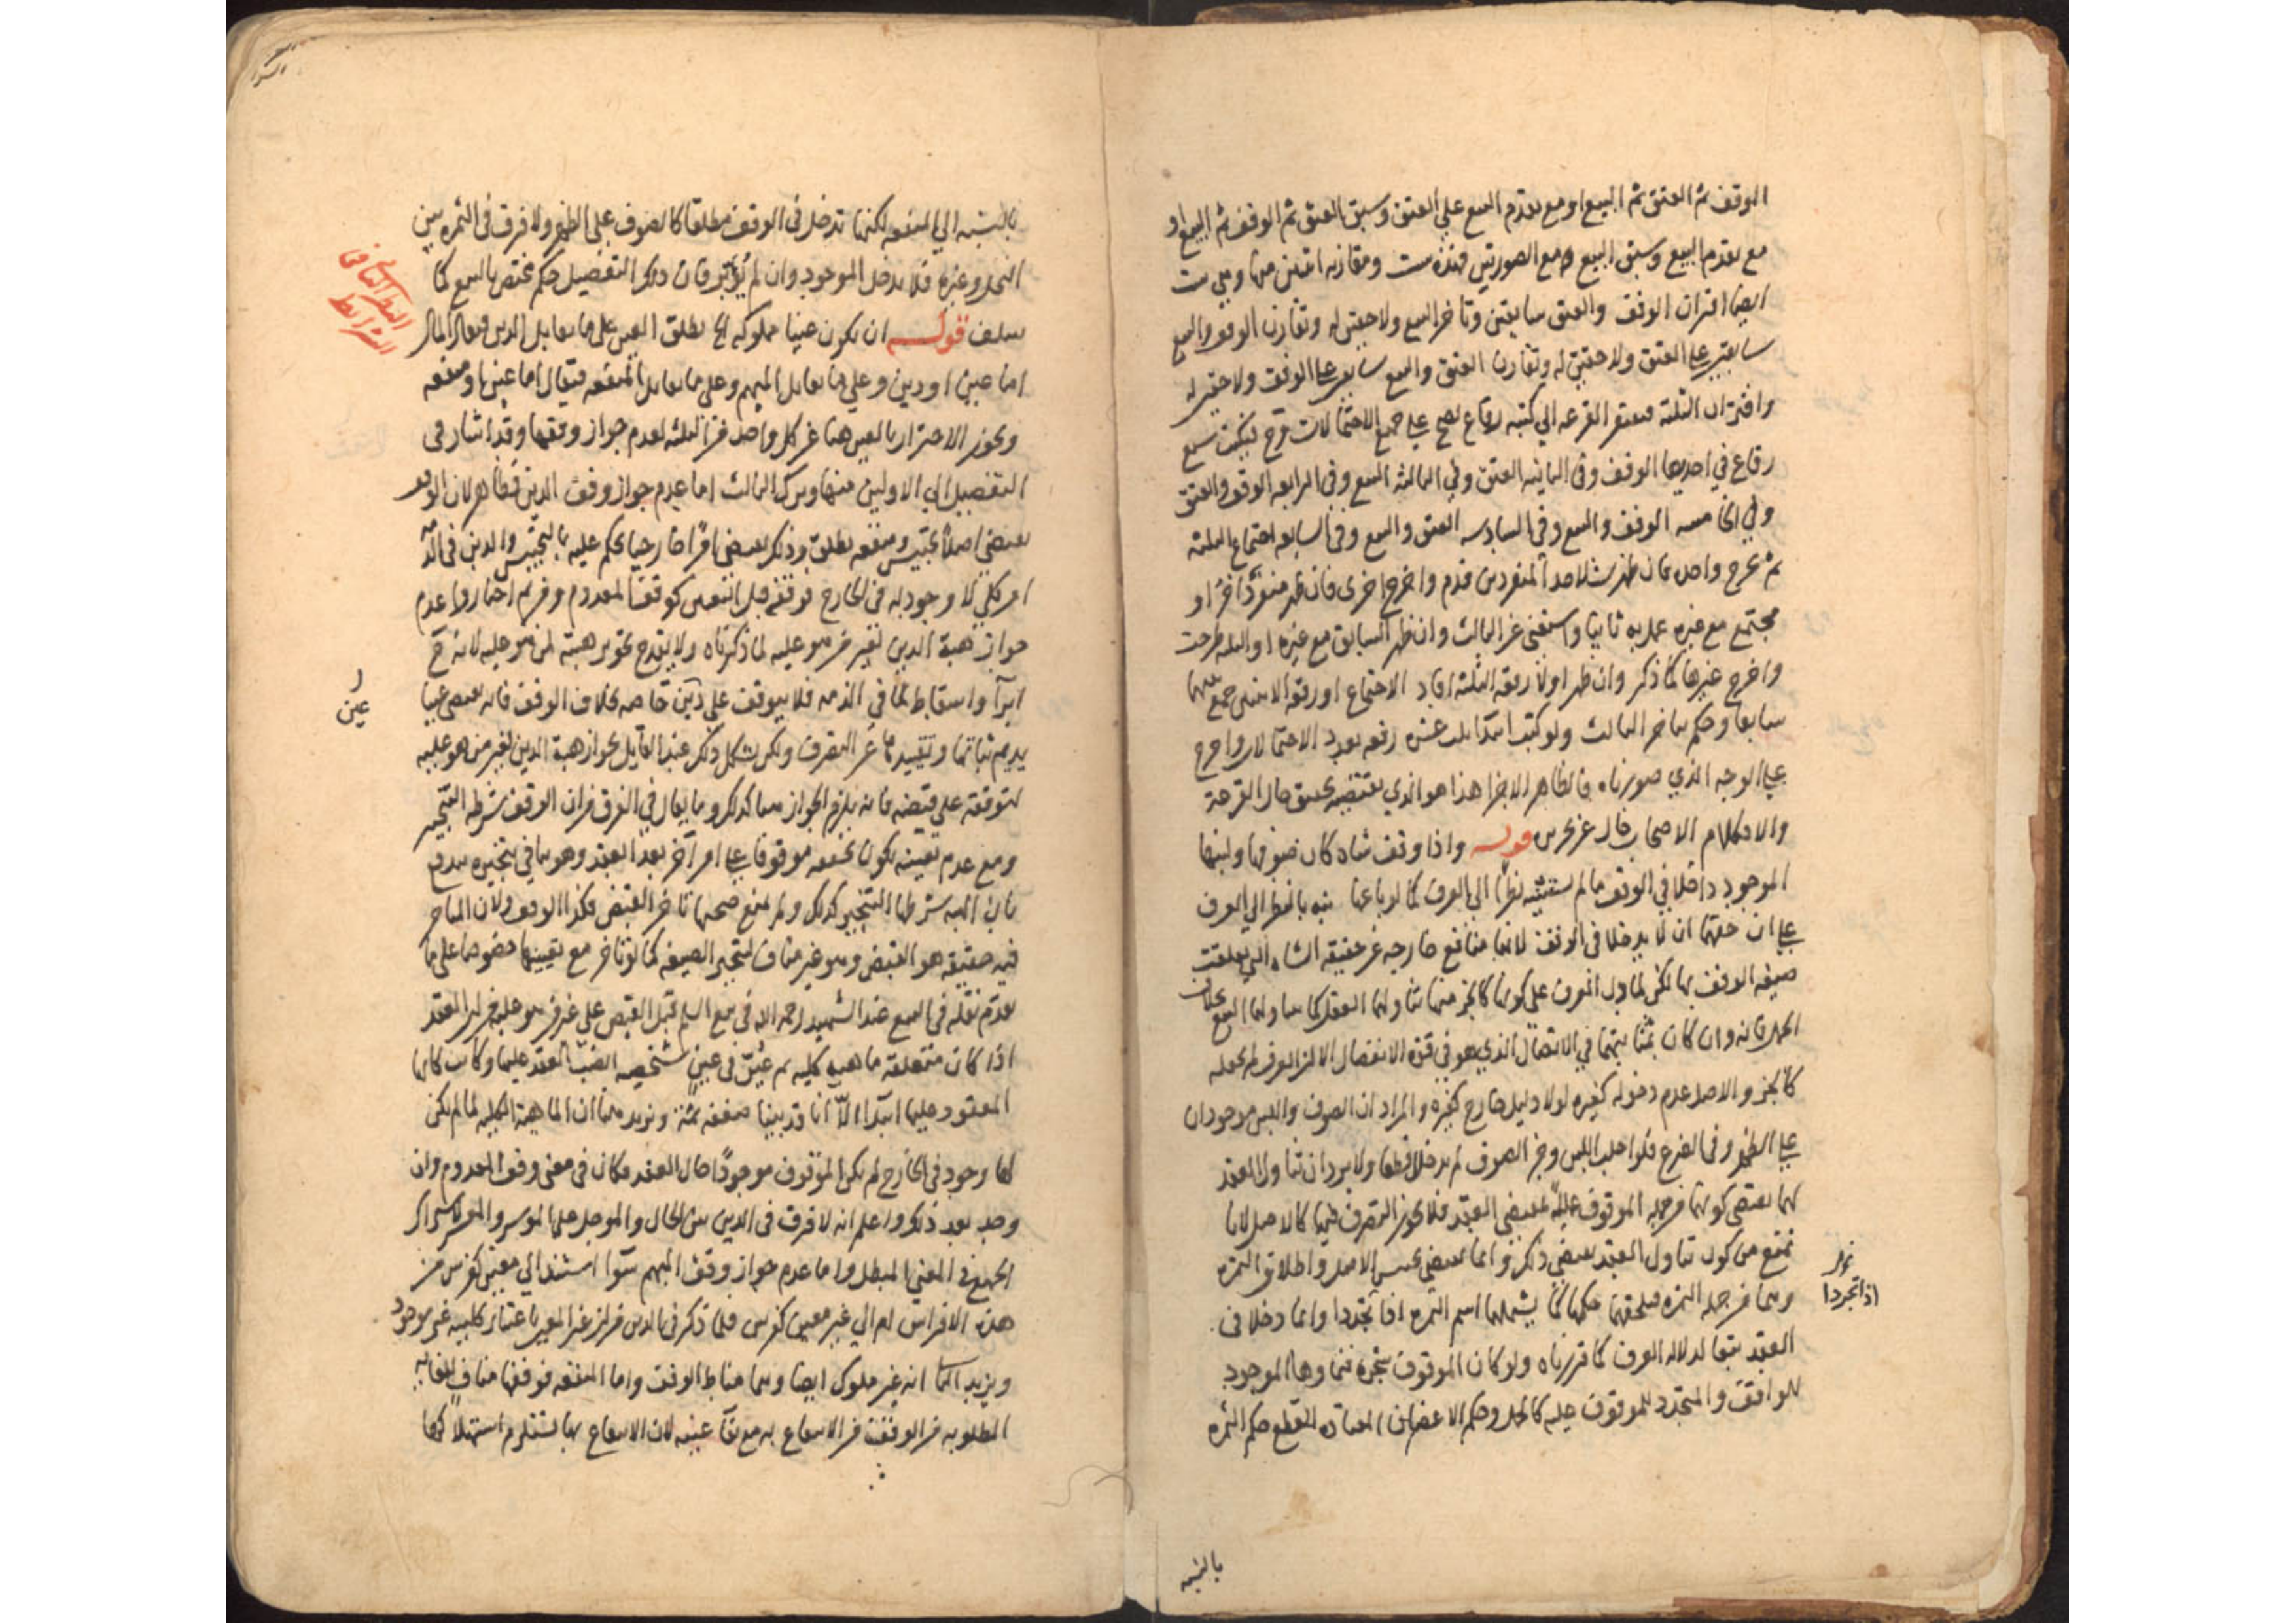 الوقف ثم العتق ثم البيع او مع تقدم البيع علي العتق وسبق العتق ثم الوقف ثم البيع او
مع تقدم البيع وسبق البيع مع الصورتين فهذه ست ومقارنه اثنين منها وهي ست
ايضا اقتران الوقف والعتق سابقين وتاخر البيع ولاحقين له وتقارن الوقف والبيع
سابقين علي العتق ولاحقين له وتقارن العتق والبيع سابقين علي الوقف ولاحقين له
واقتران الثلثه فيفتقر القرعه الي كتبه رقاع تصح علي جميع الاحتمالات فتكتب سبع
رقاع في احديها الوقف وفي الثانيه العتق وفي الثالثه البيع وفي الرابعه الوقف والعتق
وفي الخامسه الوقف والبيع وفي السادسه العتق والبيع وفي السابعه اجتماع الثلثه
ثم يخرج واحده فان ظهرت لاحد المنفردين قدم واخرج اخرى فان ظهر منفردا اخر او
مجتمع مع غيره عمل به ثانيا واستغنى عن الثالث وان ظهر السابق مع غيره او الثلثه طرحت
واخرج غيرها كما ذكر وان ظهر اولا رقعه الثلثه افاد الاجتماع او رقعه الاثنين جمع بينهما
سابقا وحكم بتاخر الثالث ولو كتب ابتدا ثلث عشره رقعه بعدد الاحتمالات واخرج
علي الوجه الذي صورناه فالظاهر الاجزا هذا هو الذي يقتضيه تحقيق حال القرعة
والا فكلام الاصحاب خال عن تحرير قوله واذا وقف شاه كان صوفها ولبنها
الموجود داخلا في الوقف ما لم يستثنه نظرا الي العرف كما لو باعها نبه بالنظر الي العرف
علي ان حقهما ان لا يدخلا في الوقف لانهما منافع خارجه عن حقيقه الشاه التي تعلقت
صيغه الوقف بها لكن لما دل العرف علي كونهما كالجزء منها تناولهما العقد كما يتناولهما البيع بخلاف
الحمل فانه وان كان مثلهما في الاتصال الذي هو في قوة الانفصال الا ان العرف لم يجعله
كالجزء والاصل عدم دخوله كغيره لولا دليل خارج كغيره والمراد ان الصوف واللبن موجودان
علي الظهر وفي الضرع فلو احلب اللبن وجز الصوف لم يدخلا قطعا ولا يرد ان تناول العقد
لهما يقتضي كونهما من جمله الموقوف عليه فيقتضي العقد فلا يجوز التصرف فيهما كالاصل لانا
نمنع من كون تناول العقد يقتضي ذلك وانما يقتضي تحبيس الاصل واطلاق الثمره
وهما من جمله الثمره فيلحقهما حكمها كما يشملهما اسم الثمره اذا تجددا وانما دخلا في
العقد تبعا لدلاله العرف كما قررناه ولو كان الموقوف شجرة فنماوها الموجود
للواقف والمتجدد للموقوف عليه كالحمل وحكم الاغصان المعتاده القطع حكم الثمره
اذا تجردا
بالنسبه
بالنسبه الي المنفعه لكنها تدخل في الوقف مطلقا كالصوف علي الظهر ولا فرق في الثمره بين
النخل وغيره فلا يدخل الموجود وان لم يؤبر فان ذلك التفصيل حكم مختص بالبيع كما
سلف قوله ان يكون عينا مملوكه الخ يطلق العين علي ما يقابل الدين فيقال المال
اما عين او دين وعلي ما يقابل المبهم وعلي ما يقابل المنفعه فيقال اما عين او منفعه
ويجوز الاحتراز بالعين هنا عن كل واحد من الثلثه لعدم جواز وقفها وقد اشار في
التفصيل الي الاولين منها وترك الثالث اما عدم جواز وقف الدين فظاهر لان الوقف
يقتضي اصلا يحبس ومنفعه تطلق وذلك يقتضي امرا خارجيا يحكم عليه بالتحبيس والدين في الذمه
امر كلي لا وجود له في الخارج فوقفه قبل التعيين كوقف المعدوم ومن ثم اختاروا عدم
جواز هبة الدين لغير من هو عليه لما ذكرناه ولا يقدح تجويز هبته لمن هو عليه لانه ح
ابرآ واسقاط لما في الذمه فلا يتوقف علي عين خاصه بخلاف الوقف فانه يقتضي عينا
يديم ثباتها وتقييدها عن التصرف ولكن يشكل ذلك عند القايل بجواز هبة الدين لغير من هو عليه
لتوقفه علي قبضه فانه يلزم الجواز هنا كذلك وما يقال في الفرق من ان الوقف شرطه التنجيز
ومع عدم تعيينه يكون تحققه موقوفا علي امر آخر بعد العقد وهو ينافي تنجيزه يندفع
بان الهبه شرطها التنجيز كذلك ولم يمنع صحتها تاخر القبض فكذا الوقف ولان المتاخر
فيه حقيقه هو القبض وهو غير مناف لتنجيز الصيغه كما لو تاخر مع تعيينها خصوصا علي ما
تقدم نقله في البيع عند الشهيد رحمه الله في بيع السلم قبل القبض علي غير من هو عليه من ان العقد
اذا كان متعلقه ماهيه كليه ثم عين في عين شخصيه انصب العقد عليها وكانت كانها
المعقود عليها ابتدا الا انا قد بينا ضعفه ثمة ونزيد هنا ان الماهية الكليه لما لم يكن
لها وجود في الخارج لم يكن الموقوف موجودا حال العقد فكان في معنى وقف المعدوم وان
وجد بعد ذلك واعلم انه لا فرق في الدين بين الحال والموجل علي الموسر والمعسر لاشتراك
الجميع في المعني المبطل واما عدم جواز وقف المبهم سوآ استند الي معين كفرس من
هذه الافراس ام الي غير معين كفرس فلما ذكر في الدين من ان غير المعين باعتبار كليته غير موجود
ويزيد انه غير مملوك ايضا وهما مناط الوقف واما المنفعه فوقفها مناف للغايه
المطلوبه من الوقف من الانتفاع به مع بقآ عينه لان الانتفاع بها يستلزم استهلاكها
عين
الشرايط